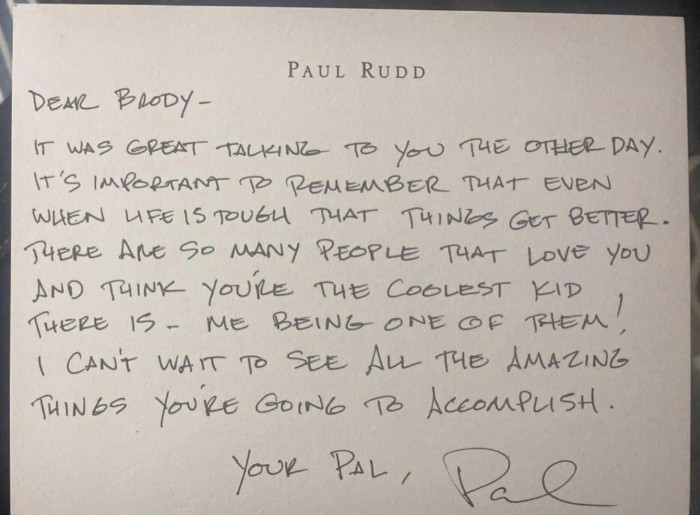 PAUL RUDD
DEAR BRODY-
IT WAS GREAT TALKING TO YOU THE OTHER DAY.
IT'S IMPORTANT TO REMEMBER THAT EVEN
WHEN LIFE IS TOUGH THAT THINGS GET BETTER.
THERE ARE SO MANY PEOPLE THAT LOVE YOU
AND THINK YOU'RE THE COOLEST KID
THERE IS - ME BEING ONE OF THEM!
I CAN'T WAIT TO SEE ALL THE AMAZING
THINGS YOU'RE GOING TO ACCOMPLISH.
YOUR PAL, Paul